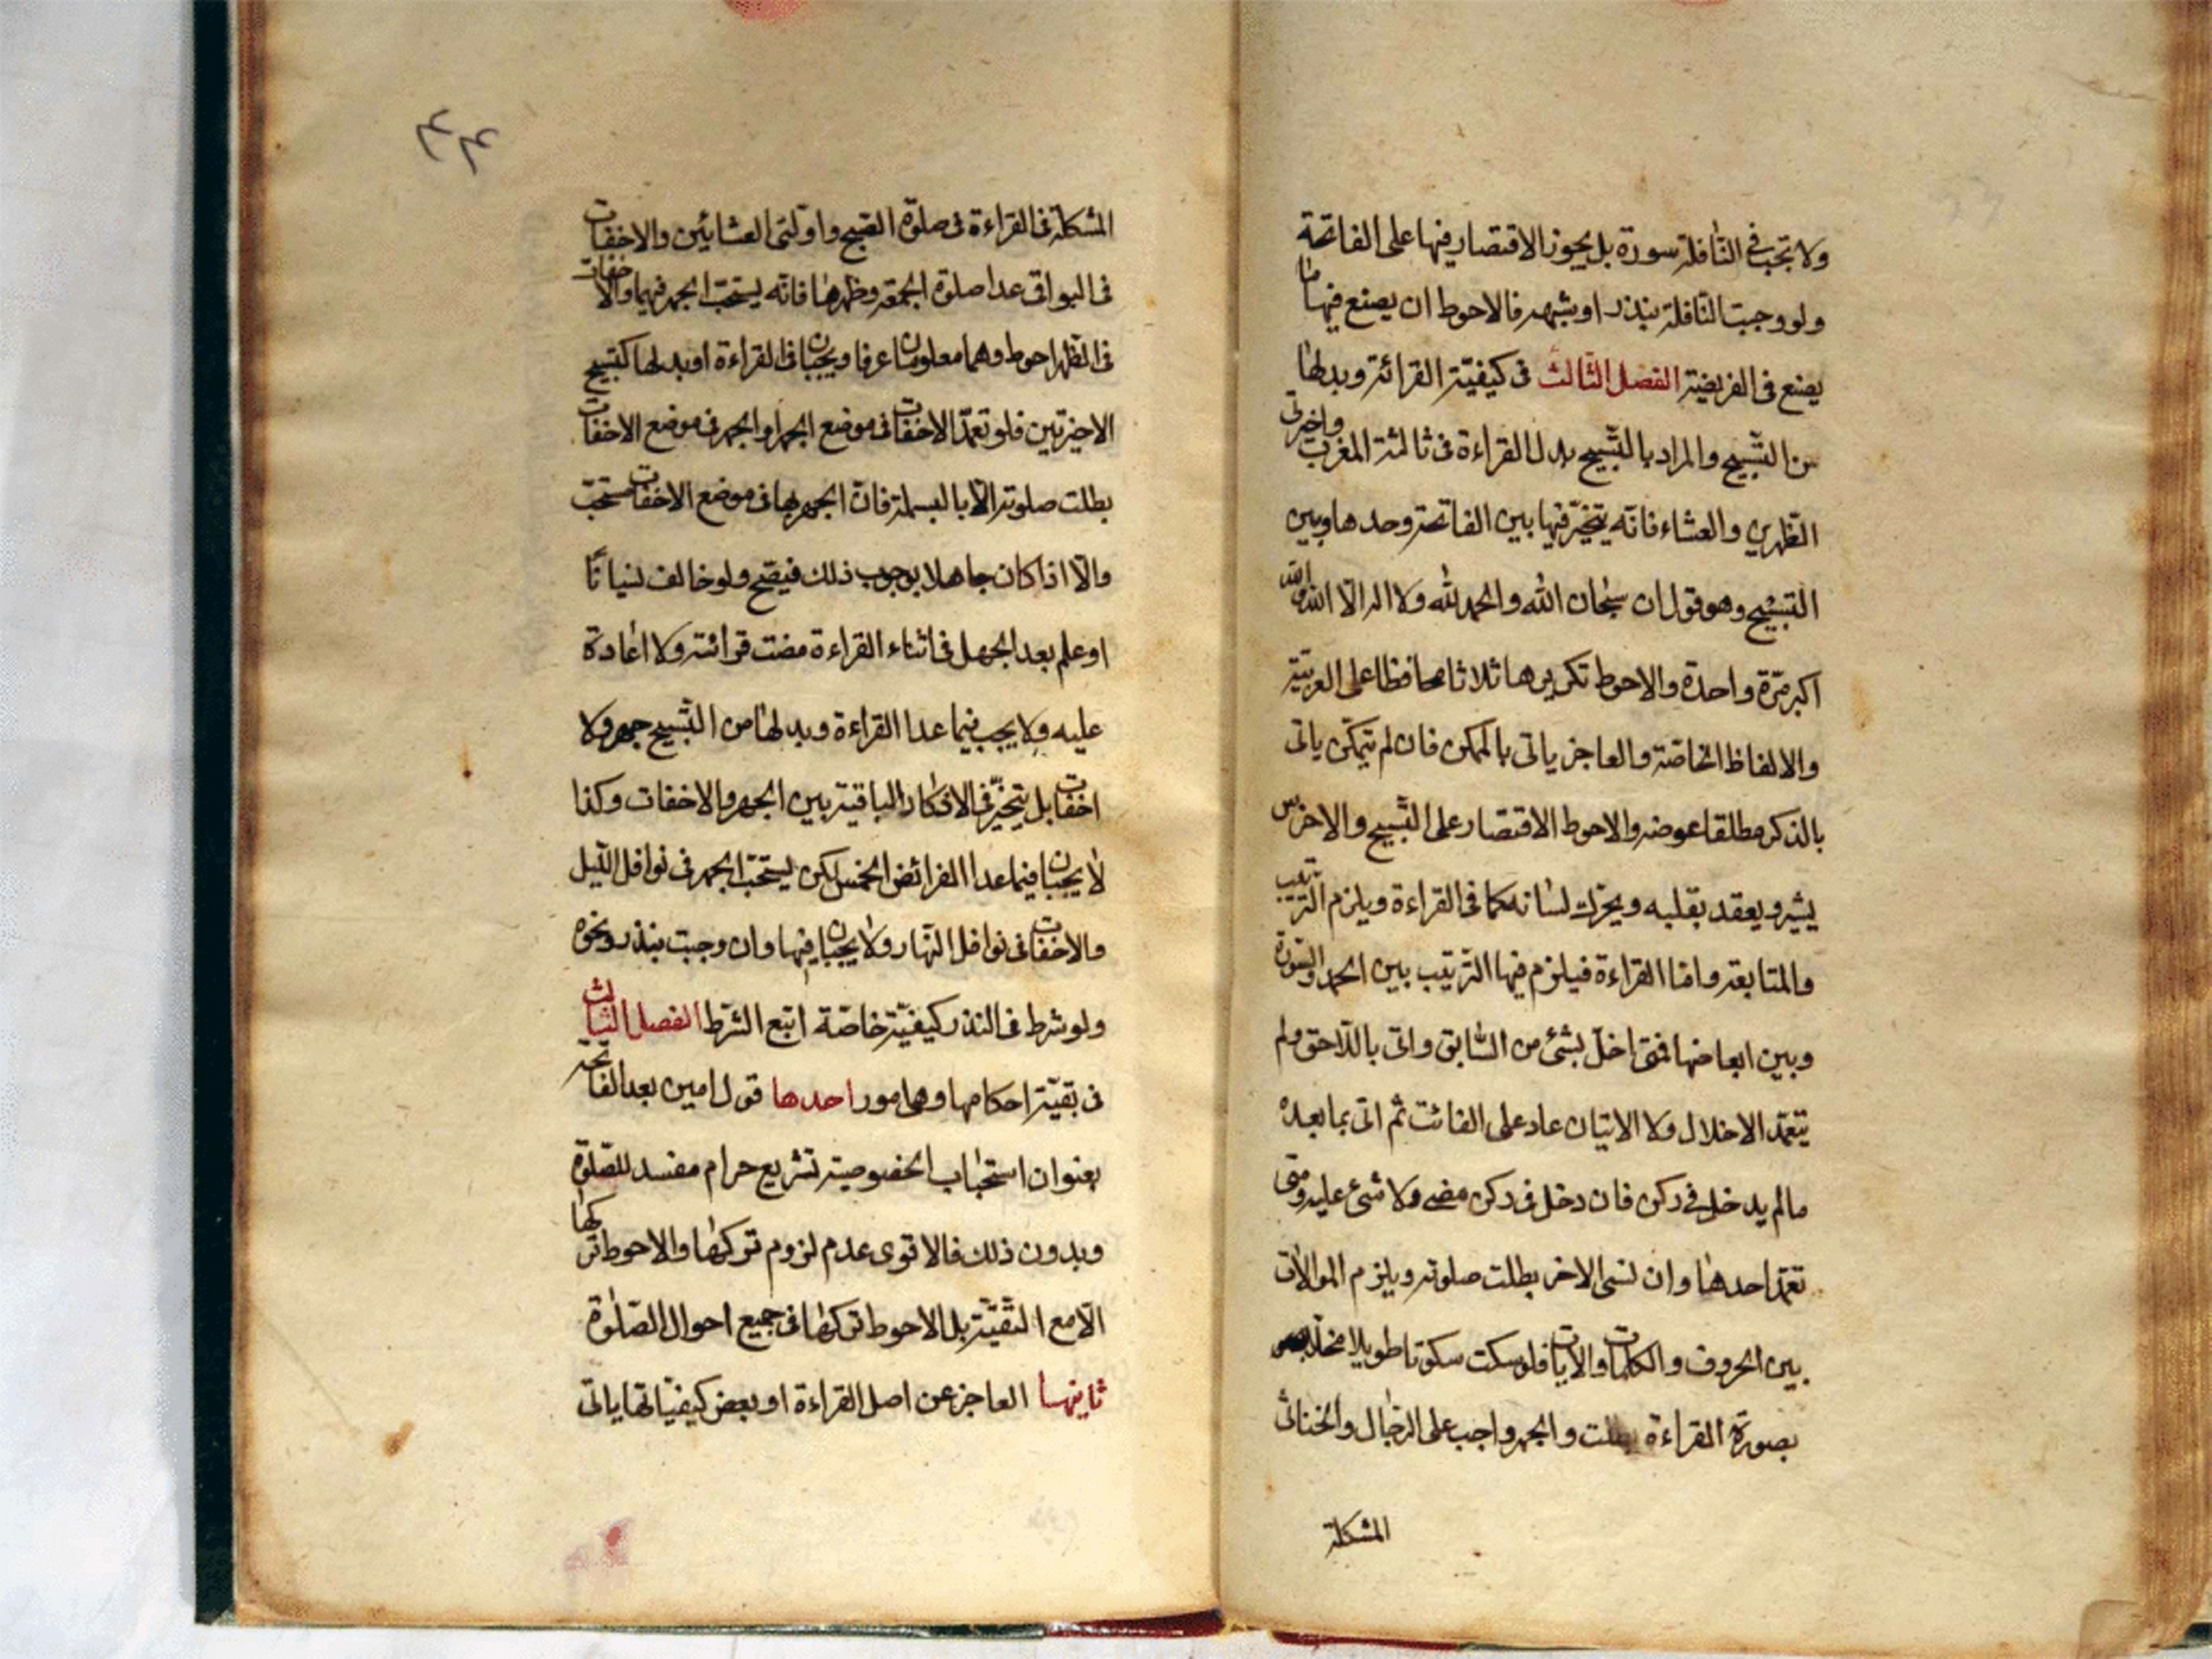 ولا تجب في النّافلة سورة بل يجوز الاقتصار فيها على الفاتحة
ولو وجبت النّافلة بنذر او شبهه فالاحوط ان يصنع فيها ما
يصنع فى الفريضة الفصل الثّالث فى كيفيّة القرائة وبدلها
من التّسبيح والمراد بالتّسبيح بدل القراءة فى ثالثة المغرب واخيرتى
الظّهرين والعشاء فانّه يتخيّر فيها بين الفاتحة وحدها وبين
التّسبيح وهو قول ان سبحان الله والحمد لله ولا اله الّا الله والله
اكبر مرّة واحدة والاحوط تكريرها ثلاثا محافظا على العربيّة
والالفاظ الخاصّة والعاجز ياتى بالممكن فان لم يتمكّن ياتى
بالذكر مطلقا عوضه والاحوط الاقتصار على التّسبيح والاخرس
يشير ويعقد بقلبه ويحرّك لسانه كما فى القراءة ويلزم التّرتيب
والمتابعة وامّا القراءة فيلزم فيها التّرتيب بين الحمد والسّورة
وبين ابعاضها فمتى اخلّ بشئ من السّابق واتى باللّاحق ولم
يتعمّد الاخلال ولا الاتيان عاد على الفائت ثم اتى بما بعده
ما لم يدخل فى ركن فان دخل فى ركن مضى ولا شئ عليه ومتى
تعمّد احدها وان نسى الاخر بطلت صلوته ويلزم الموالات
بين الحروف والكلمات والآيات فلو سكت سكوتا طويلا مخلّا
بصورة القراءة بطلت والجهر واجب على الرّجال والخناثى
المشكلة
٤٤
المشكلة فى القراءة فى صلوة الصّبح واوّلتى العشائين والاخفات
فى البواقى عدا صلوة الجمعة وظهرها فانّه يستحبّ الجهر فيهما والاخفات
فى الظّهر احوط وهما معلومان عرفا ويجبان فى القراءة او بدلها كتسبيح
الاخيرتين فلو تعمّد الاخفات فى موضع الجهر او الجهر فى موضع الاخفات
بطلت صلوته الّا بالبسملة فانّ الجهر بها فى موضع الاخفات مستحبّ
والّا اذا كان جاهلا بوجوب ذلك فيصّح ولو خالف نسيانًا
او علم بعد الجهل فى اثناء القراءة مضت قرائته ولا اعادة
عليه ولا يجب فيما عدا القراءة وبدلها من التّسبيح جهر ولا
اخفات بل يتخيّر فى الاذكار الباقية بين الجهر والاخفات وكذا
لا يجبان فيما عدا الفرائض الخمس لكن يستحبّ الجهر فى نوافل اللّيل
والاخفات فى نوافل النّهار ولا يجبان فيها وان وجبت بنذر ونحوه
ولو شرط فى النذر كيفيّة خاصّة اتبع الشّرط الفصل الثّالث
فى بقيّة احكامها وهى امور احدها قول امين بعد الفاتحة
بعنوان استحباب الخصوصية تشريع حرام مفسد للصّلوة
وبدون ذلك فالاقوى عدم لزوم تركها والاحوط تركها
الّا مع التقيّة بل الاحوط تركها فى جميع احوال الصّلوة
ثانيها العاجز عن اصل القراءة او بعض كيفيّاتها ياتى